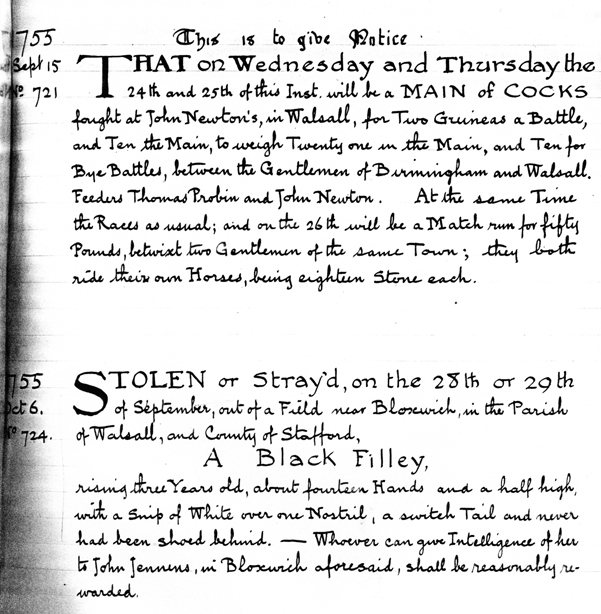 755
Sept 15
No 721
This is to give Notice.
THAT on Wednesday and Thursday the
24th and 25th of this Inst. will be a MAIN of COCKS
fought at John Newton's, in Walsall, for Two Guineas a Battle,
and Ten the Main, to weigh Twenty one in the Main, and Ten for
Bye Battles, between the Gentlemen of Birmingham and Walsall.
Feeders Thomas Probin and John Newton. At the same Time
the Races as usual; and on the 26th will be a Match run for fifty
Pounds, betwixt two Gentlemen of the same Town; they both
ride their own Horses, being eighteen Stone each.
755
Oct 6.
No 724.
STOLEN or Stray'd, on the 28th or 29th
of September, out of a Field near Bloxwich, in the Parish
of Walsall, and County of Stafford,
A Black Filley,
rising three Years old, about fourteen Hands and a half high,
with a Snip of White over one Nostril, a switch Tail and never
had been shoed behind. — Whoever can give Intelligence of her
to John Jennens, in Bloxwich aforesaid, shall be reasonably re-
warded.